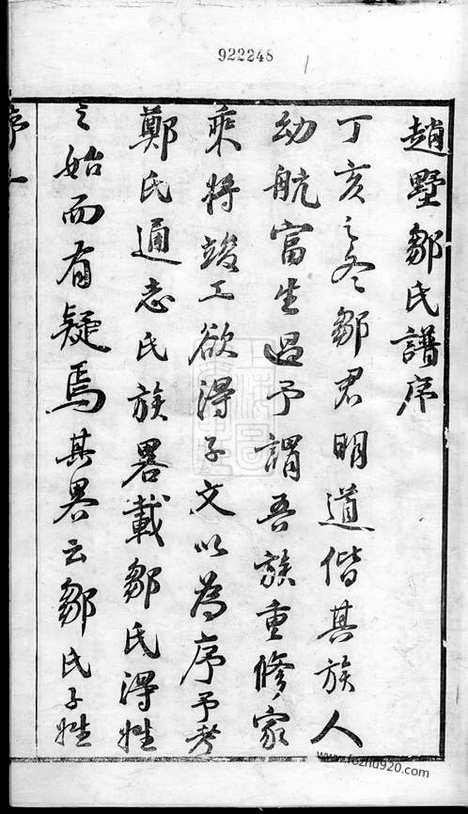 922248
趙墅鄒氏譜序
丁亥之冬鄒君明道偕其族人
幼航富生過予謂吾族重修家
乘將竣工欲得子文以為序予考
鄭氏通志氏族畧載鄒氏得姓
之始而有疑焉其畧云鄒氏子姓
序一
www.fozhu920.com